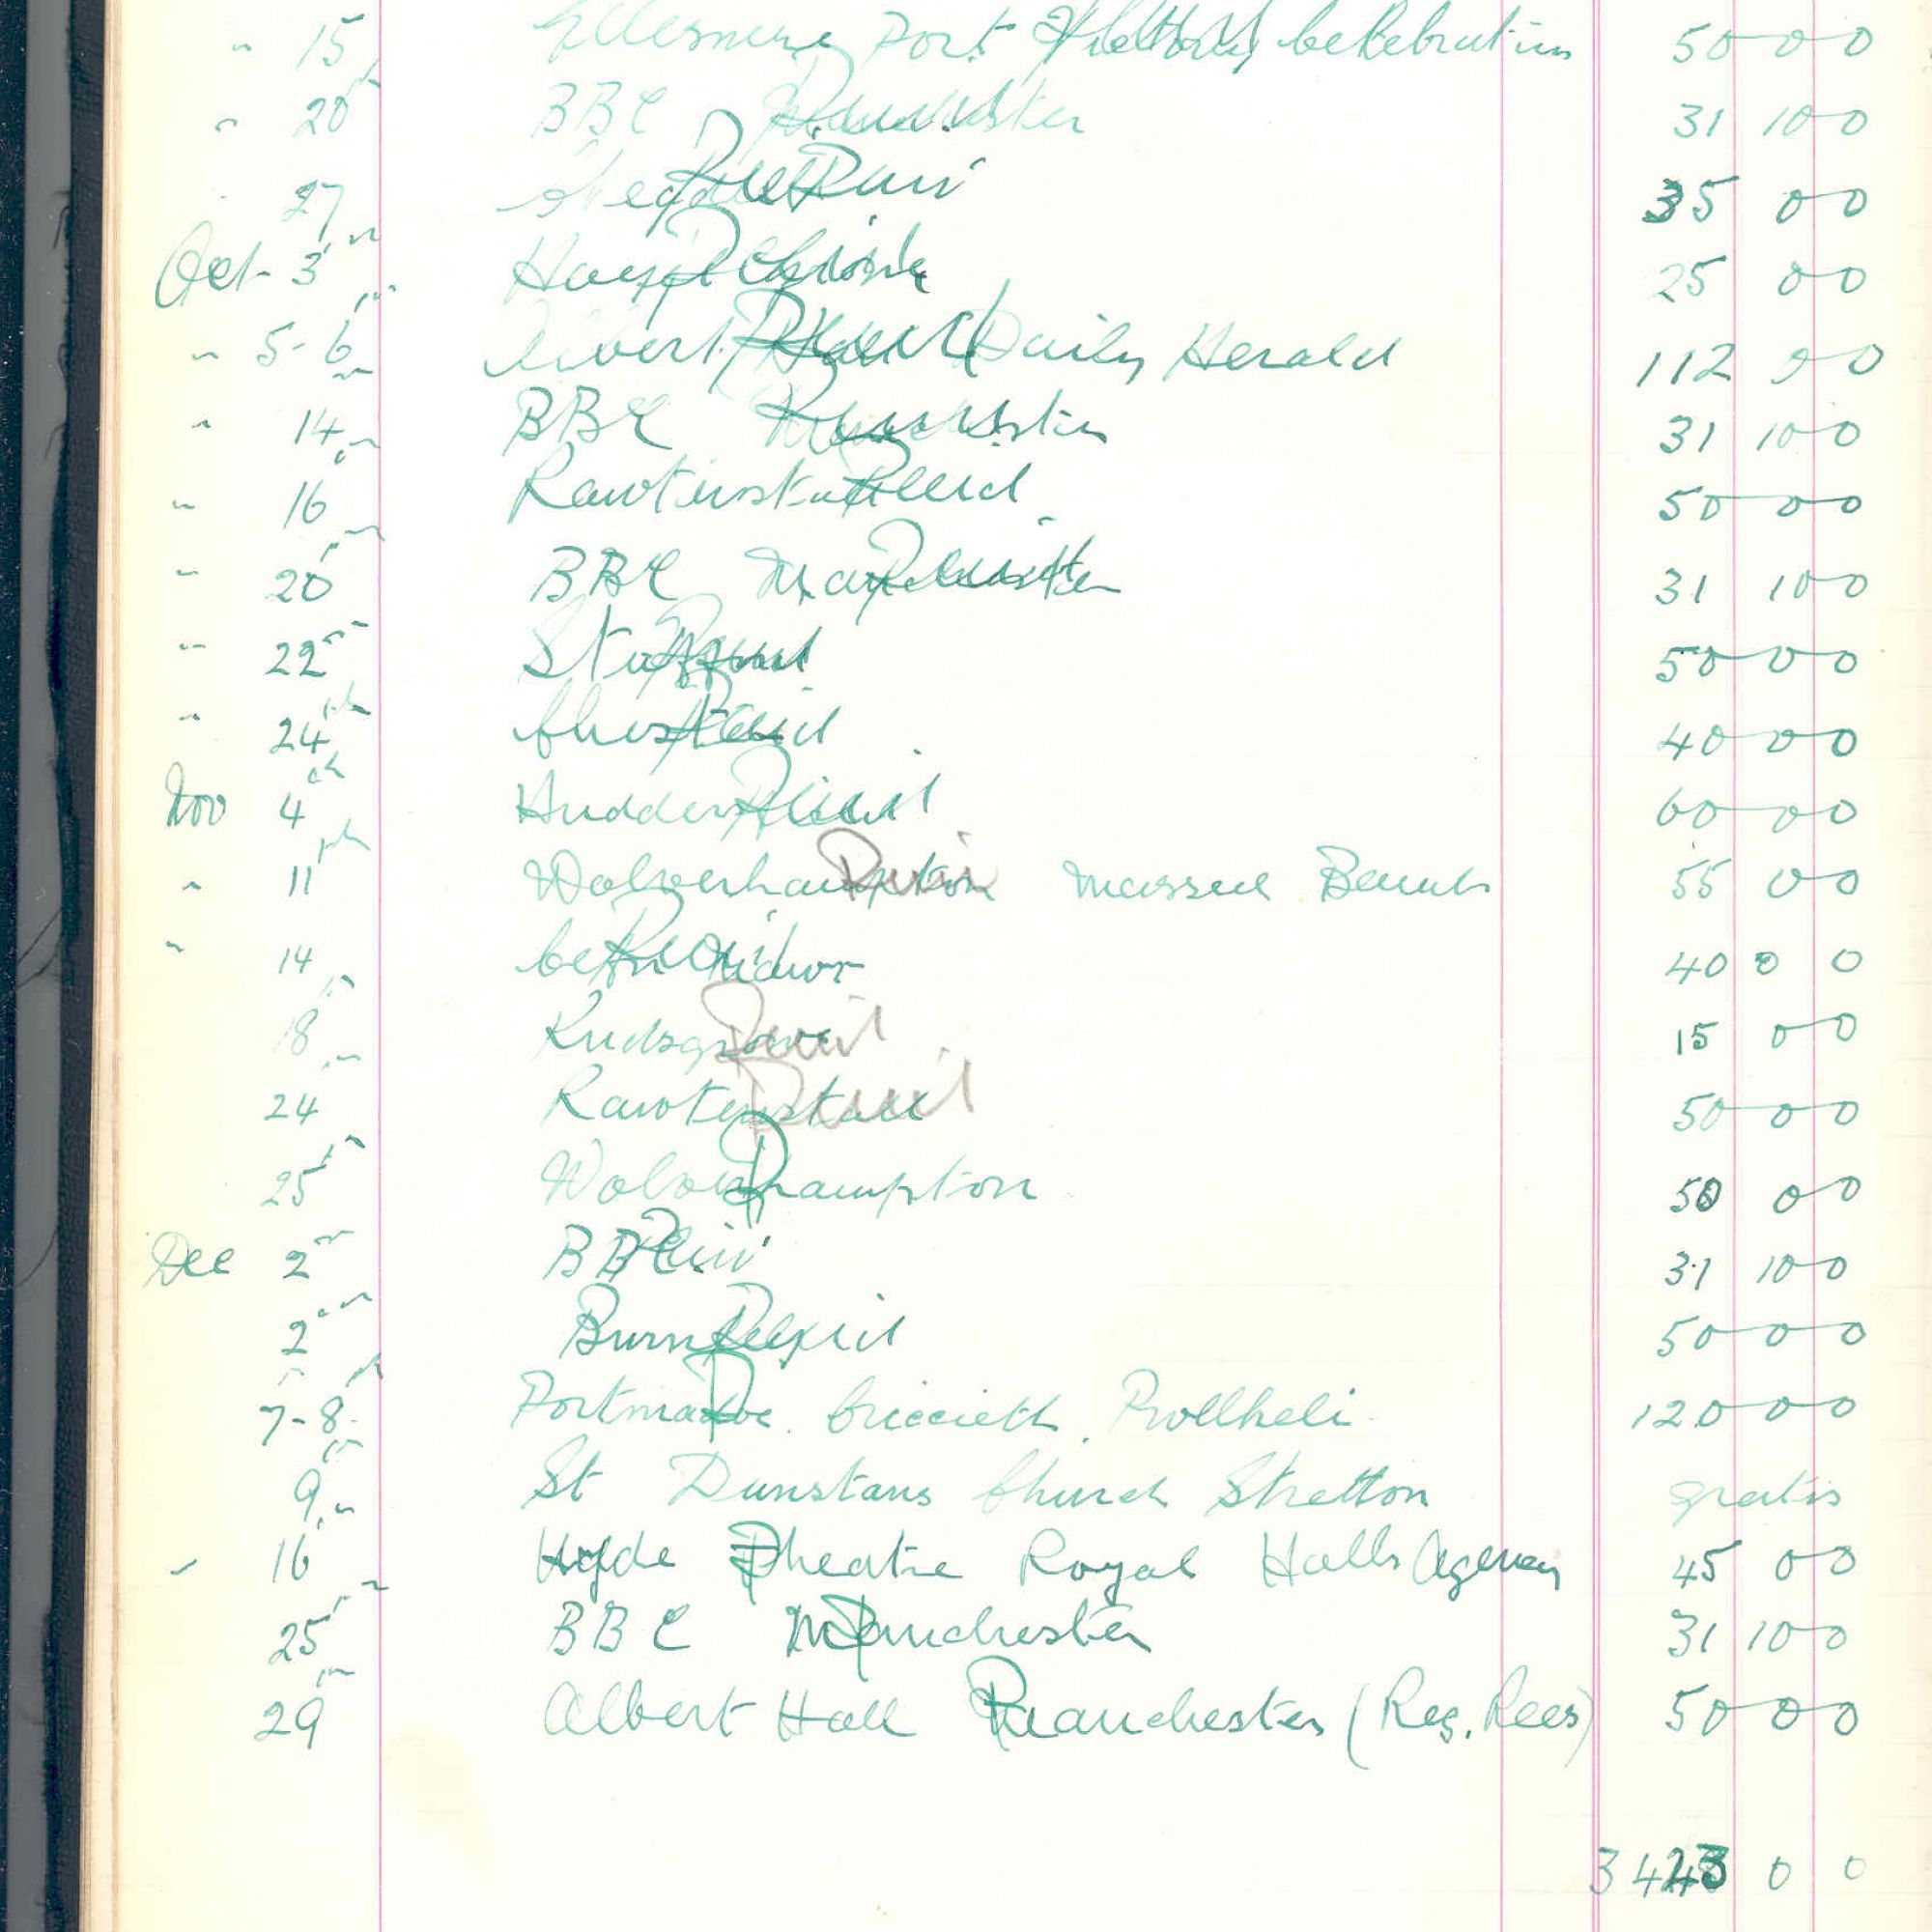 " 15 Ellesmere Port 50 0 0
" 20 BBC Manchester 31 10 0
" 27 Paid 35 0 0
Oct 3 Paid 25 0 0
" 5-6 Albert Hall (Daily Herald 112 0 0
" 14 BBC Manchester 31 10 0
" 16 Rawtenstall Paid 50 0 0
" 20th BBC Manchester 31 10 0
" 22 Paid 50 0 0
" 24th Paid 40 0 0
Nov 4th Paid 60 0 0
" 11th Wolverhampton Paid Massed Bands 55 0 0
" 14 Paid 40 0 0
18 Paid 15 0 0
24 Rawtenstall Paid 50 0 0
25th Wolverhampton 50 0 0
Dec 2 BBC Paid 31 10 0
2 Paid 50 0 0
7-8th Portmadoc. Criccieth. Pwllheli 120 0 0
9th St Dunstans Church Stretton gratis
" 16 Hyde Theatre Royal Halls Agency 45 0 0
25th BBC Manchester 31 10 0
29 Albert Hall Manchester (Reg. Rees) 50 0 0
3423 0 0